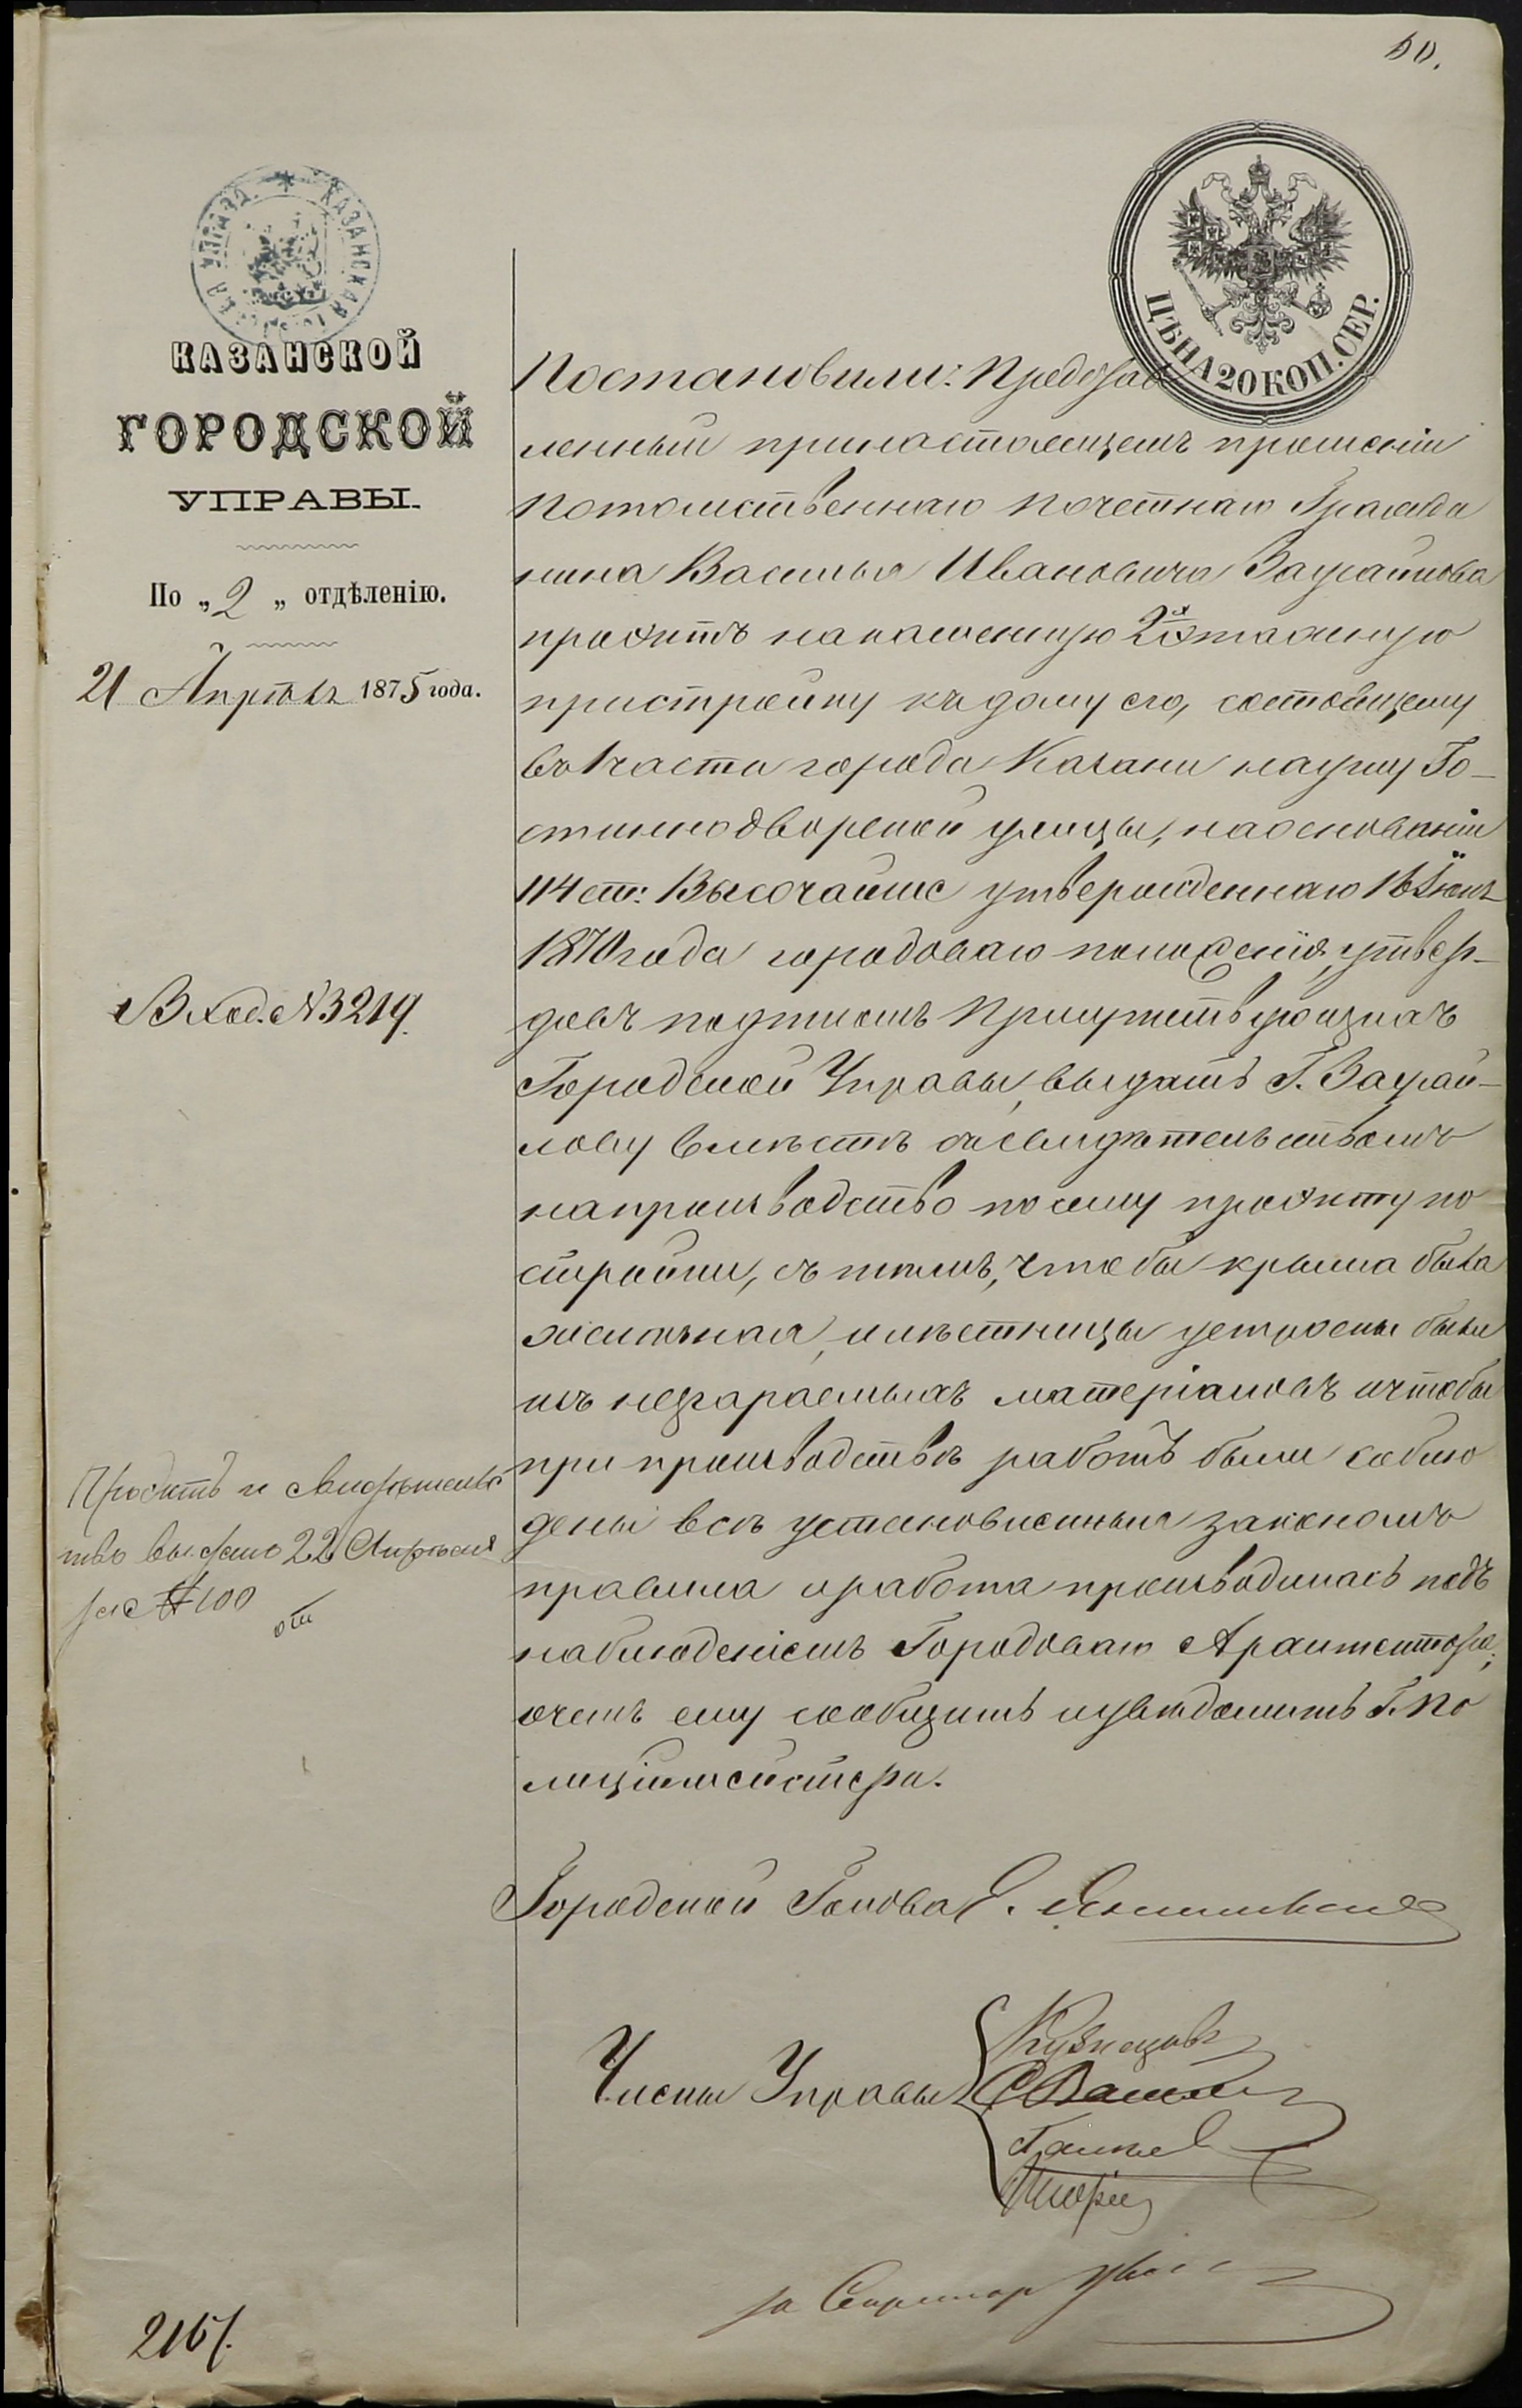 50.
КАЗАНСКАЯ УПРАВА
ЦѢНА 20 КОП. СЕР.
КАЗАНСКОЙ
ГОРОДСКОЙ
УПРАВЫ.
По „2„ отдѣленію.
21 Апрѣля 1875 года.
Вход. № 3219.
Проэктъ и свидѣтельс
тво выдано 22 Апрѣля
за № 100
Постановили: Представ
ленный при настоящемъ прошеніи
Потомственнаго Почетнаго Гражда
нина Василья Ивановича Заусайлова
проэктъ на каменную 2хъ этажную
пристройку къ дому его, состоящему
въ 1 части города Казани на углу Го-
стиннодворской улицы, на основаніи
114 ст: Высочайше утвержденнаго 16 Іюня
1870 года городоваго положенія, утвер-
дивъ подписомъ Присутствующихъ
Городской Управы, выдать Г. Заусай-
лову вмѣстѣ съ свидѣтельствомъ
на производство по сему проэкту по
стройки, съ тѣмъ, чтобы крыша была
желѣзная, и лѣстницы устроены были
изъ незгараемыхъ матеріаловъ и чтобы
при производствѣ работъ были соблю
дены всѣ установленныя закономъ
правила и работа производилась подъ
наблюденіемъ Городоваго Архитектора;
о чемъ ему сообщить и увѣдомить Г. По
лиціймейстера.
Городской Голова Э. Янишевскій
Члены Управы Кузнецовъ
за Секретаря
2167.